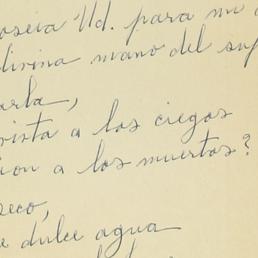 oseia Ud. para mi
divina mano del sup
arla,
vista a los ciegos
ion a los muertos?
seco,
e dulce agua